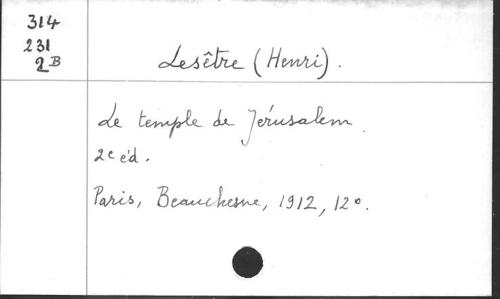 314
231
2B
Lesêtre (Henri).
Le temple de Jérusalem.
2e éd.
Paris, Beauchesne, 1912, 12°.